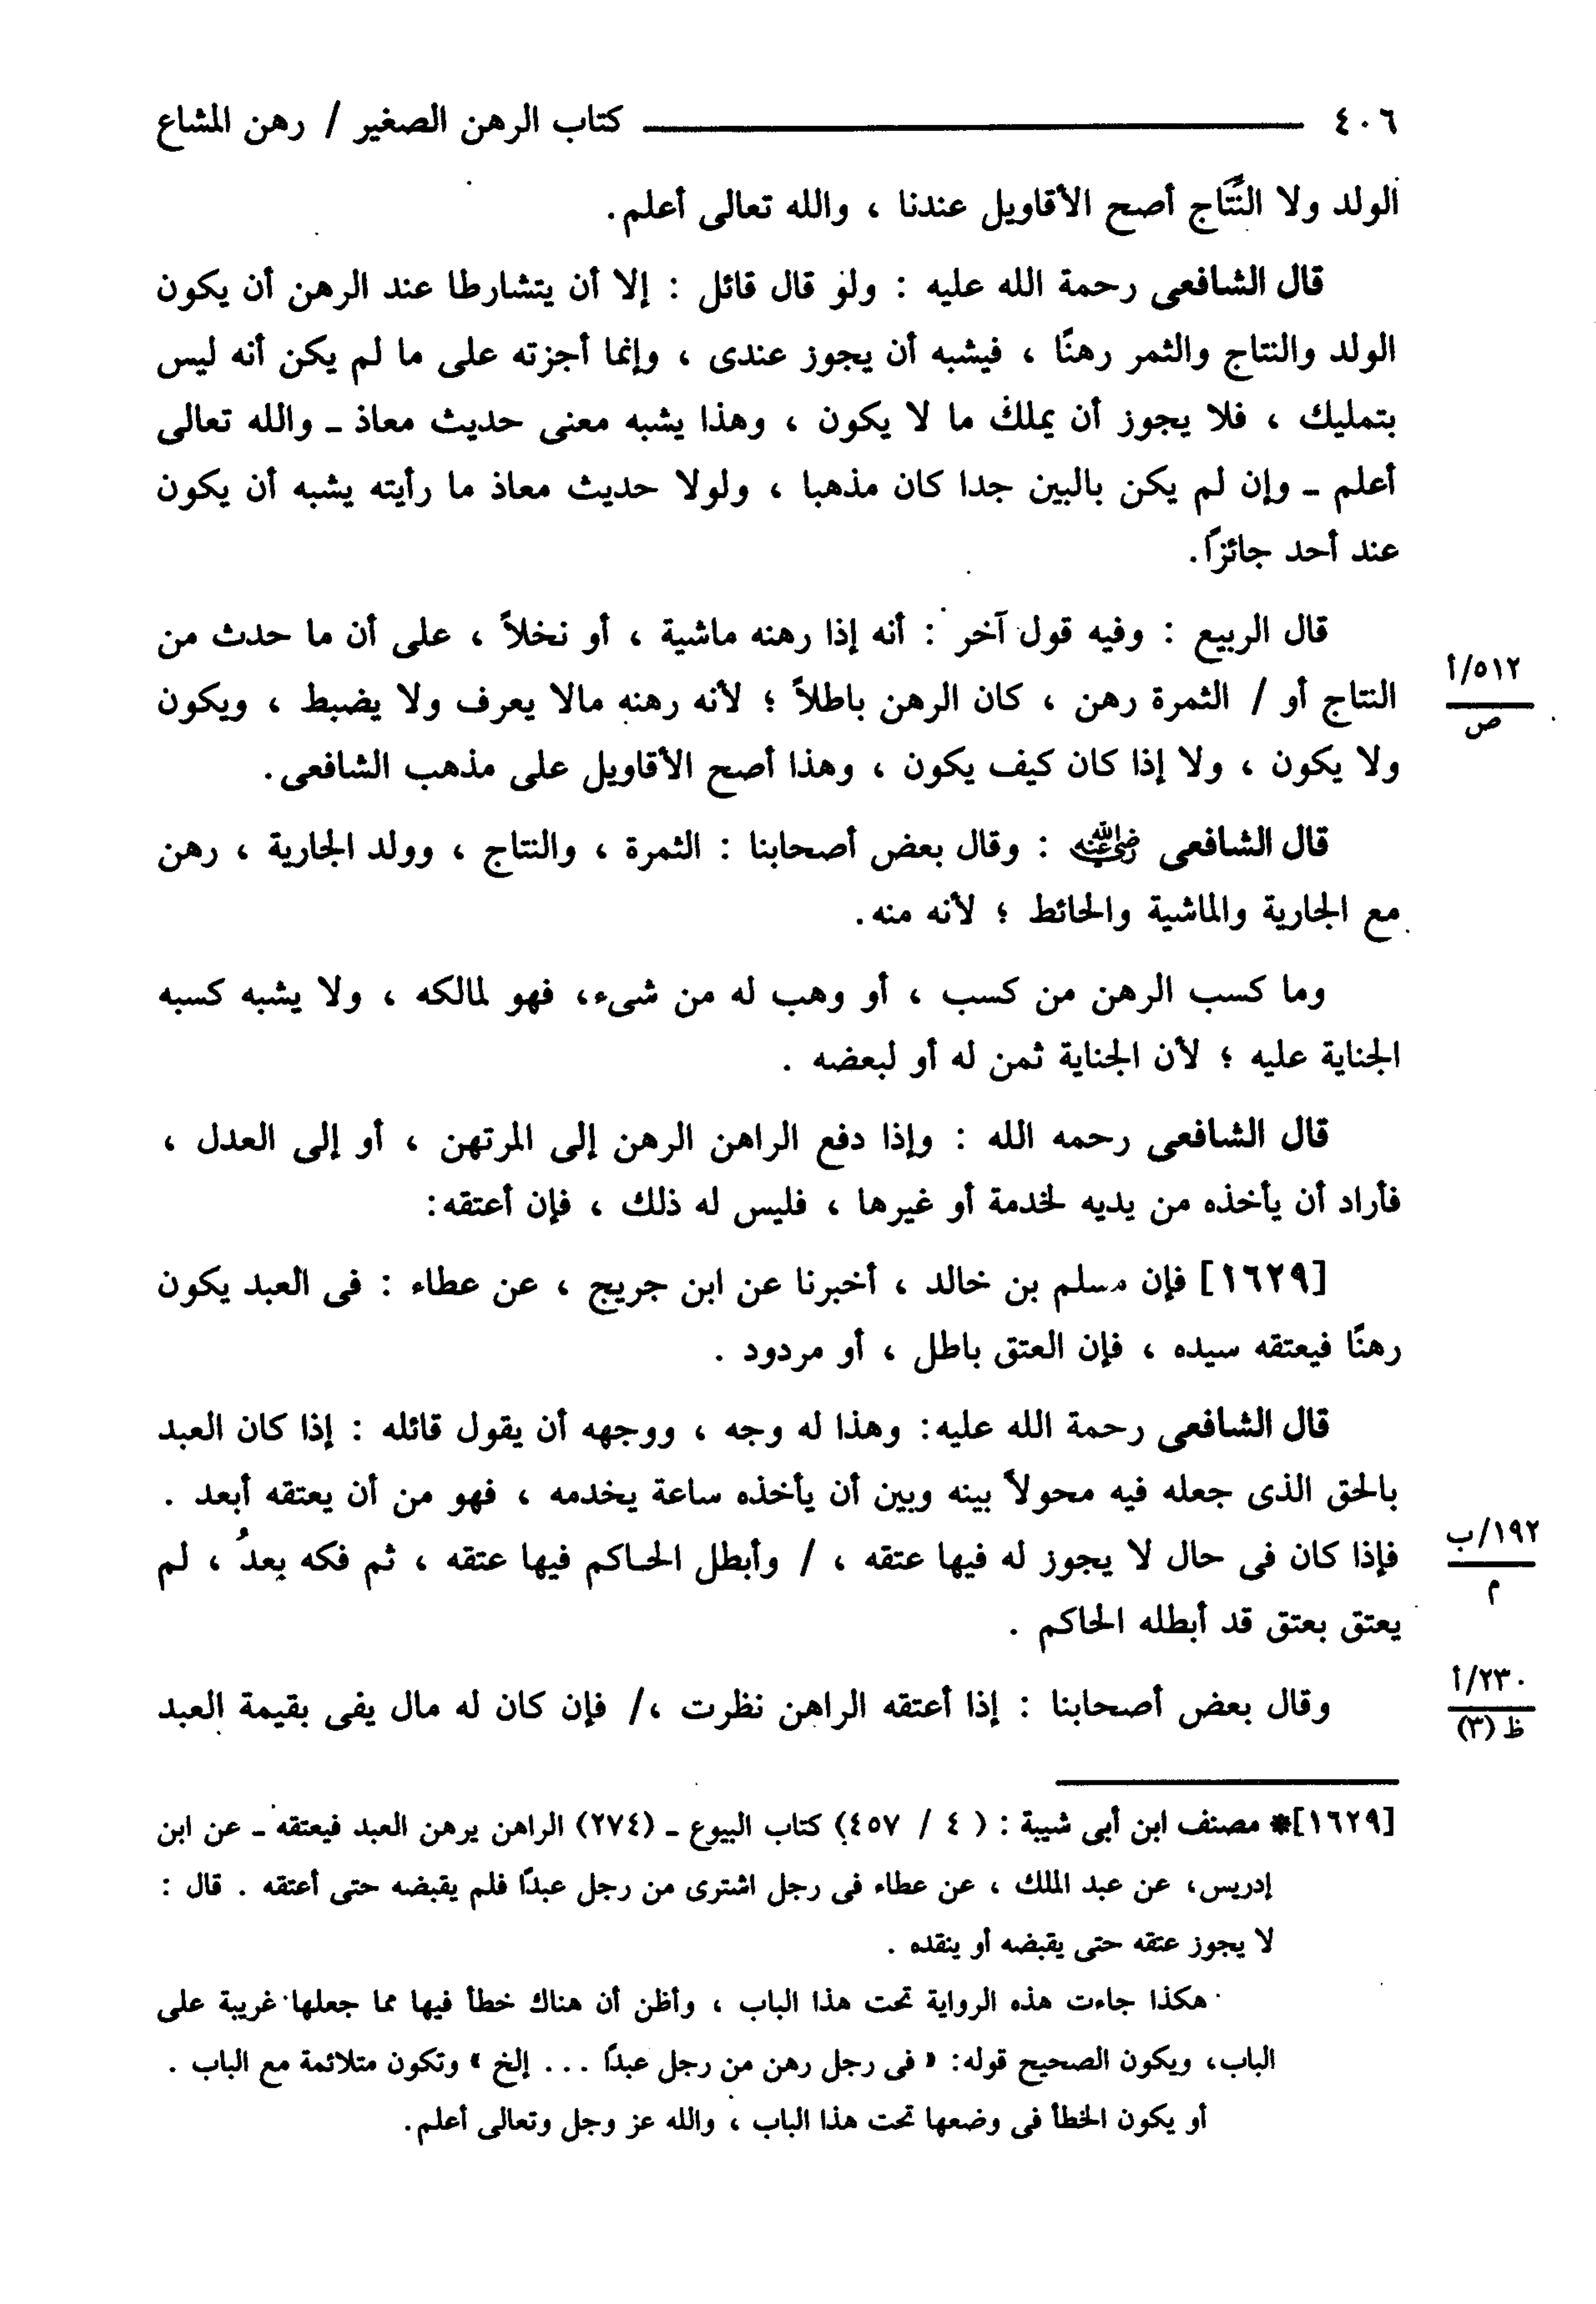 ٤٠٦ كتاب الرهن الصغير / رهن المشاع
الولد ولا النِّتَاج أصح الأقاويل عندنا ، والله تعالى أعلم.
قال الشافعى رحمة الله عليه : ولو قال قائل : إلا أن يتشارطا عند الرهن أن يكون
الولد والنتاج والثمر رهنًا ، فيشبه أن يجوز عندى ، وإنما أجزته على ما لم يكن أنه ليس
بتمليك ، فلا يجوز أن يملك ما لا يكون ، وهذا يشبه معنى حديث معاذ ـ والله تعالى
أعلم ـ وإن لم يكن بالبين جدا كان مذهبا ، ولولا حديث معاذ ما رأيته يشبه أن يكون
عند أحد جائزاً.
قال الربيع : وفيه قول آخر : أنه إذا رهنه ماشية ، أو نخلاً ، على أن ما حدث من
النتاج أو / الثمرة رهن ، كان الرهن باطلاً ؛ لأنه رهنه مالا يعرف ولا يضبط ، ويكون
٥١٢/أ
ص
ولا يكون ، ولا إذا كان كيف يكون ، وهذا أصح الأقاويل على مذهب الشافعى.
قال الشافعى رضي الله عنه : وقال بعض أصحابنا : الثمرة ، والنتاج ، وولد الجارية ، رهن
مع الجارية والماشية والحائط ؛ لأنه منه.
وما كسب الرهن من كسب ، أو وهب له من شىء، فهو لمالكه ، ولا يشبه كسبه
الجناية عليه ؛ لأن الجناية ثمن له أو لبعضه .
قال الشافعى رحمه الله : وإذا دفع الراهن الرهن إلى المرتهن ، أو إلى العدل ،
فأراد أن يأخذه من يديه لخدمة أو غيرها ، فليس له ذلك ، فإن أعتقه:
[١٦٢٩] فإن مسلم بن خالد ، أخبرنا عن ابن جريج ، عن عطاء : فى العبد يكون
رهنًا فيعتقه سيده ، فإن العتق باطل ، أو مردود .
قال الشافعى رحمة الله عليه: وهذا له وجه ، ووجهه أن يقول قائله : إذا كان العبد
بالحق الذى جعله فيه محولاً بينه وبين أن يأخذه ساعة يخدمه ، فهو من أن يعتقه أبعد .
فإذا كان فى حال لا يجوز له فيها عتقه ، / وأبطل الحاكم فيها عتقه ، ثم فكه بعدُ ، لم
١٩٢/ب
م
يعتق بعتق قد أبطله الحاكم .
وقال بعض أصحابنا : إذا أعتقه الراهن نظرت ،/ فإن كان له مال يفى بقيمة العبد
٢٣٠/أ
ظ (٣)
[١٦٢٩]* مصنف ابن أبى شيبة : ( ٤ / ٤٥٧) كتاب البيوع ـ (٢٧٤) الراهن يرهن العبد فيعتقه ـ عن ابن
إدريس، عن عبد الملك ، عن عطاء فى رجل اشترى من رجل عبدًا فلم يقبضه حتى أعتقه . قال :
لا يجوز عتقه حتى يقبضه أو ينقده .
هكذا جاءت هذه الرواية تحت هذا الباب ، وأظن أن هناك خطأ فيها مما جعلها غريبة على
الباب، ويكون الصحيح قوله: « فى رجل رهن من رجل عبدًا ... إلخ » وتكون متلائمة مع الباب .
أو يكون الخطأ فى وضعها تحت هذا الباب ، والله عز وجل وتعالى أعلم.